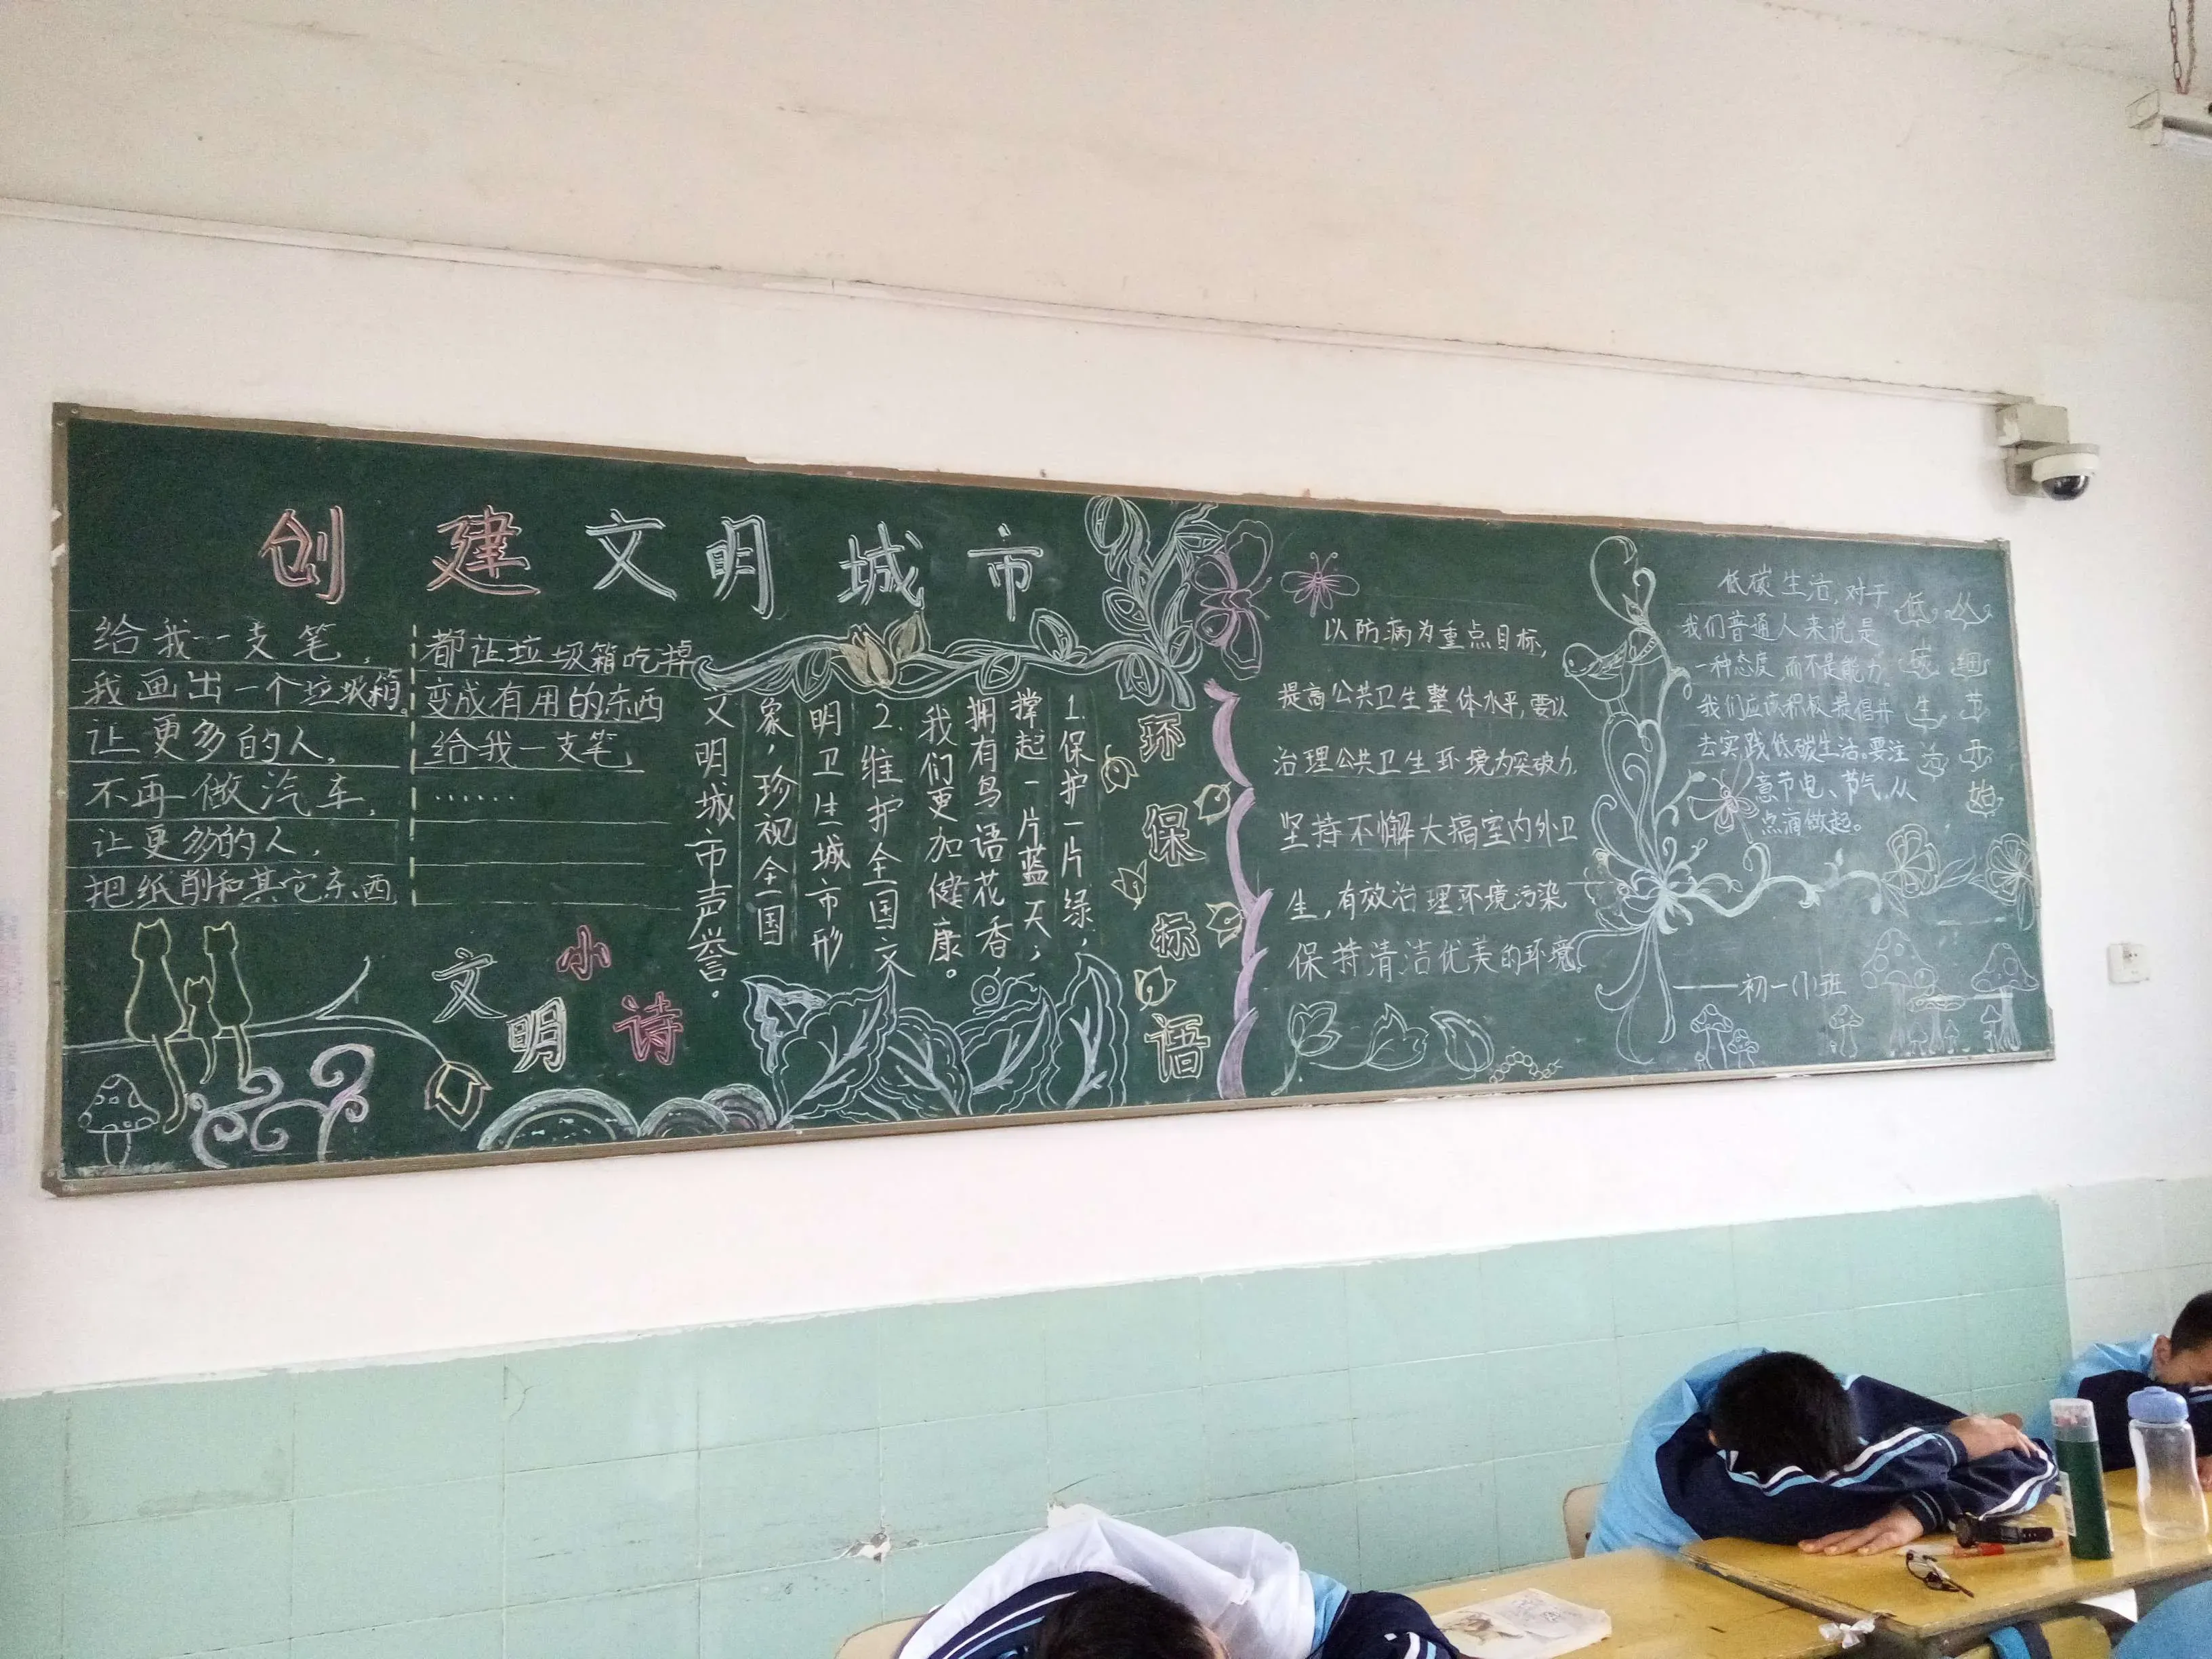 创建文明城市
给我一支笔，
我画出一个垃圾箱。
让更多的人，
不再做汽车，
让更多的人，
把纸削和其它东西
都让垃圾箱吃掉
变成有用的东西
给我一支笔
……
文明小诗
环保标语
1.保护一片绿，
撑起一片蓝天；
拥有鸟语花香，
我们更加健康。
2.维护全国文
明卫生城市形
象，珍视全国
文明城市声誉。
以防病为重点目标，
提高公共卫生整体水平，要以
治理公共卫生环境为突破力，
坚持不懈大搞室内外卫
生，有效治理环境污染，
保持清洁优美的环境。
从细节开始
低碳生活
低碳生活，对于
我们普通人来说是
一种态度，而不是能力。
我们应该积极提倡并
去实践低碳生活。要注
意节电、节气，从
点滴做起。
——初一
班